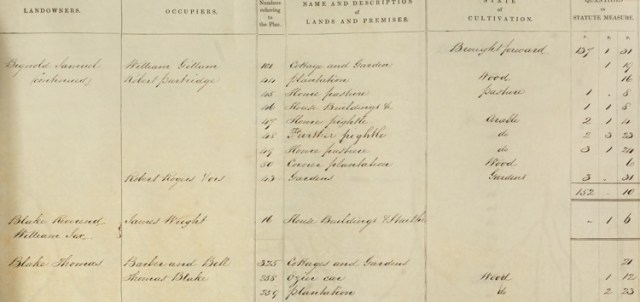 LANDOWNERS. OCCUPIERS. Numbers referring to the Plan. NAME AND DESCRIPTION of LANDS AND PREMISES. STATE OF CULTIVATION. QUANTITIES in STATUTE MEASURE.
a. r. p.
Brought forward 1 31
Samuel William Gillam 101 Cottage and Garden 1 19
(continued) Robert Partridge 44 plantation Wood 16
45 Home pasture pasture 1 - 8
46 House Buildings & 1 1 8
47 Home pightle Arable 2 1 4
48 Further pightle do 2 3 23
49 Home pasture do 3 1 24
50 Corner plantation Wood 6
Robert 43 Gardens Gardens 3 - 31
152 - 10
Blake Reverend James Wright 16 House Buildings & - 1 6
William
Blake Thomas Barber and Bell 325 Cottages and Gardens 21
Thomas Blake 258 Ozier car Wood 1 12
259 plantation do 2 23